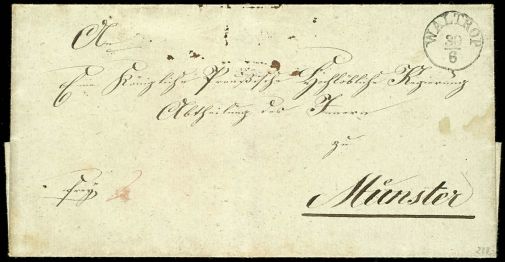 An
WALTROP
30/6
Eine Königliche Preußische Hochlöbliche Regierung
Abtheilung des Innern
zu
Münster
frey